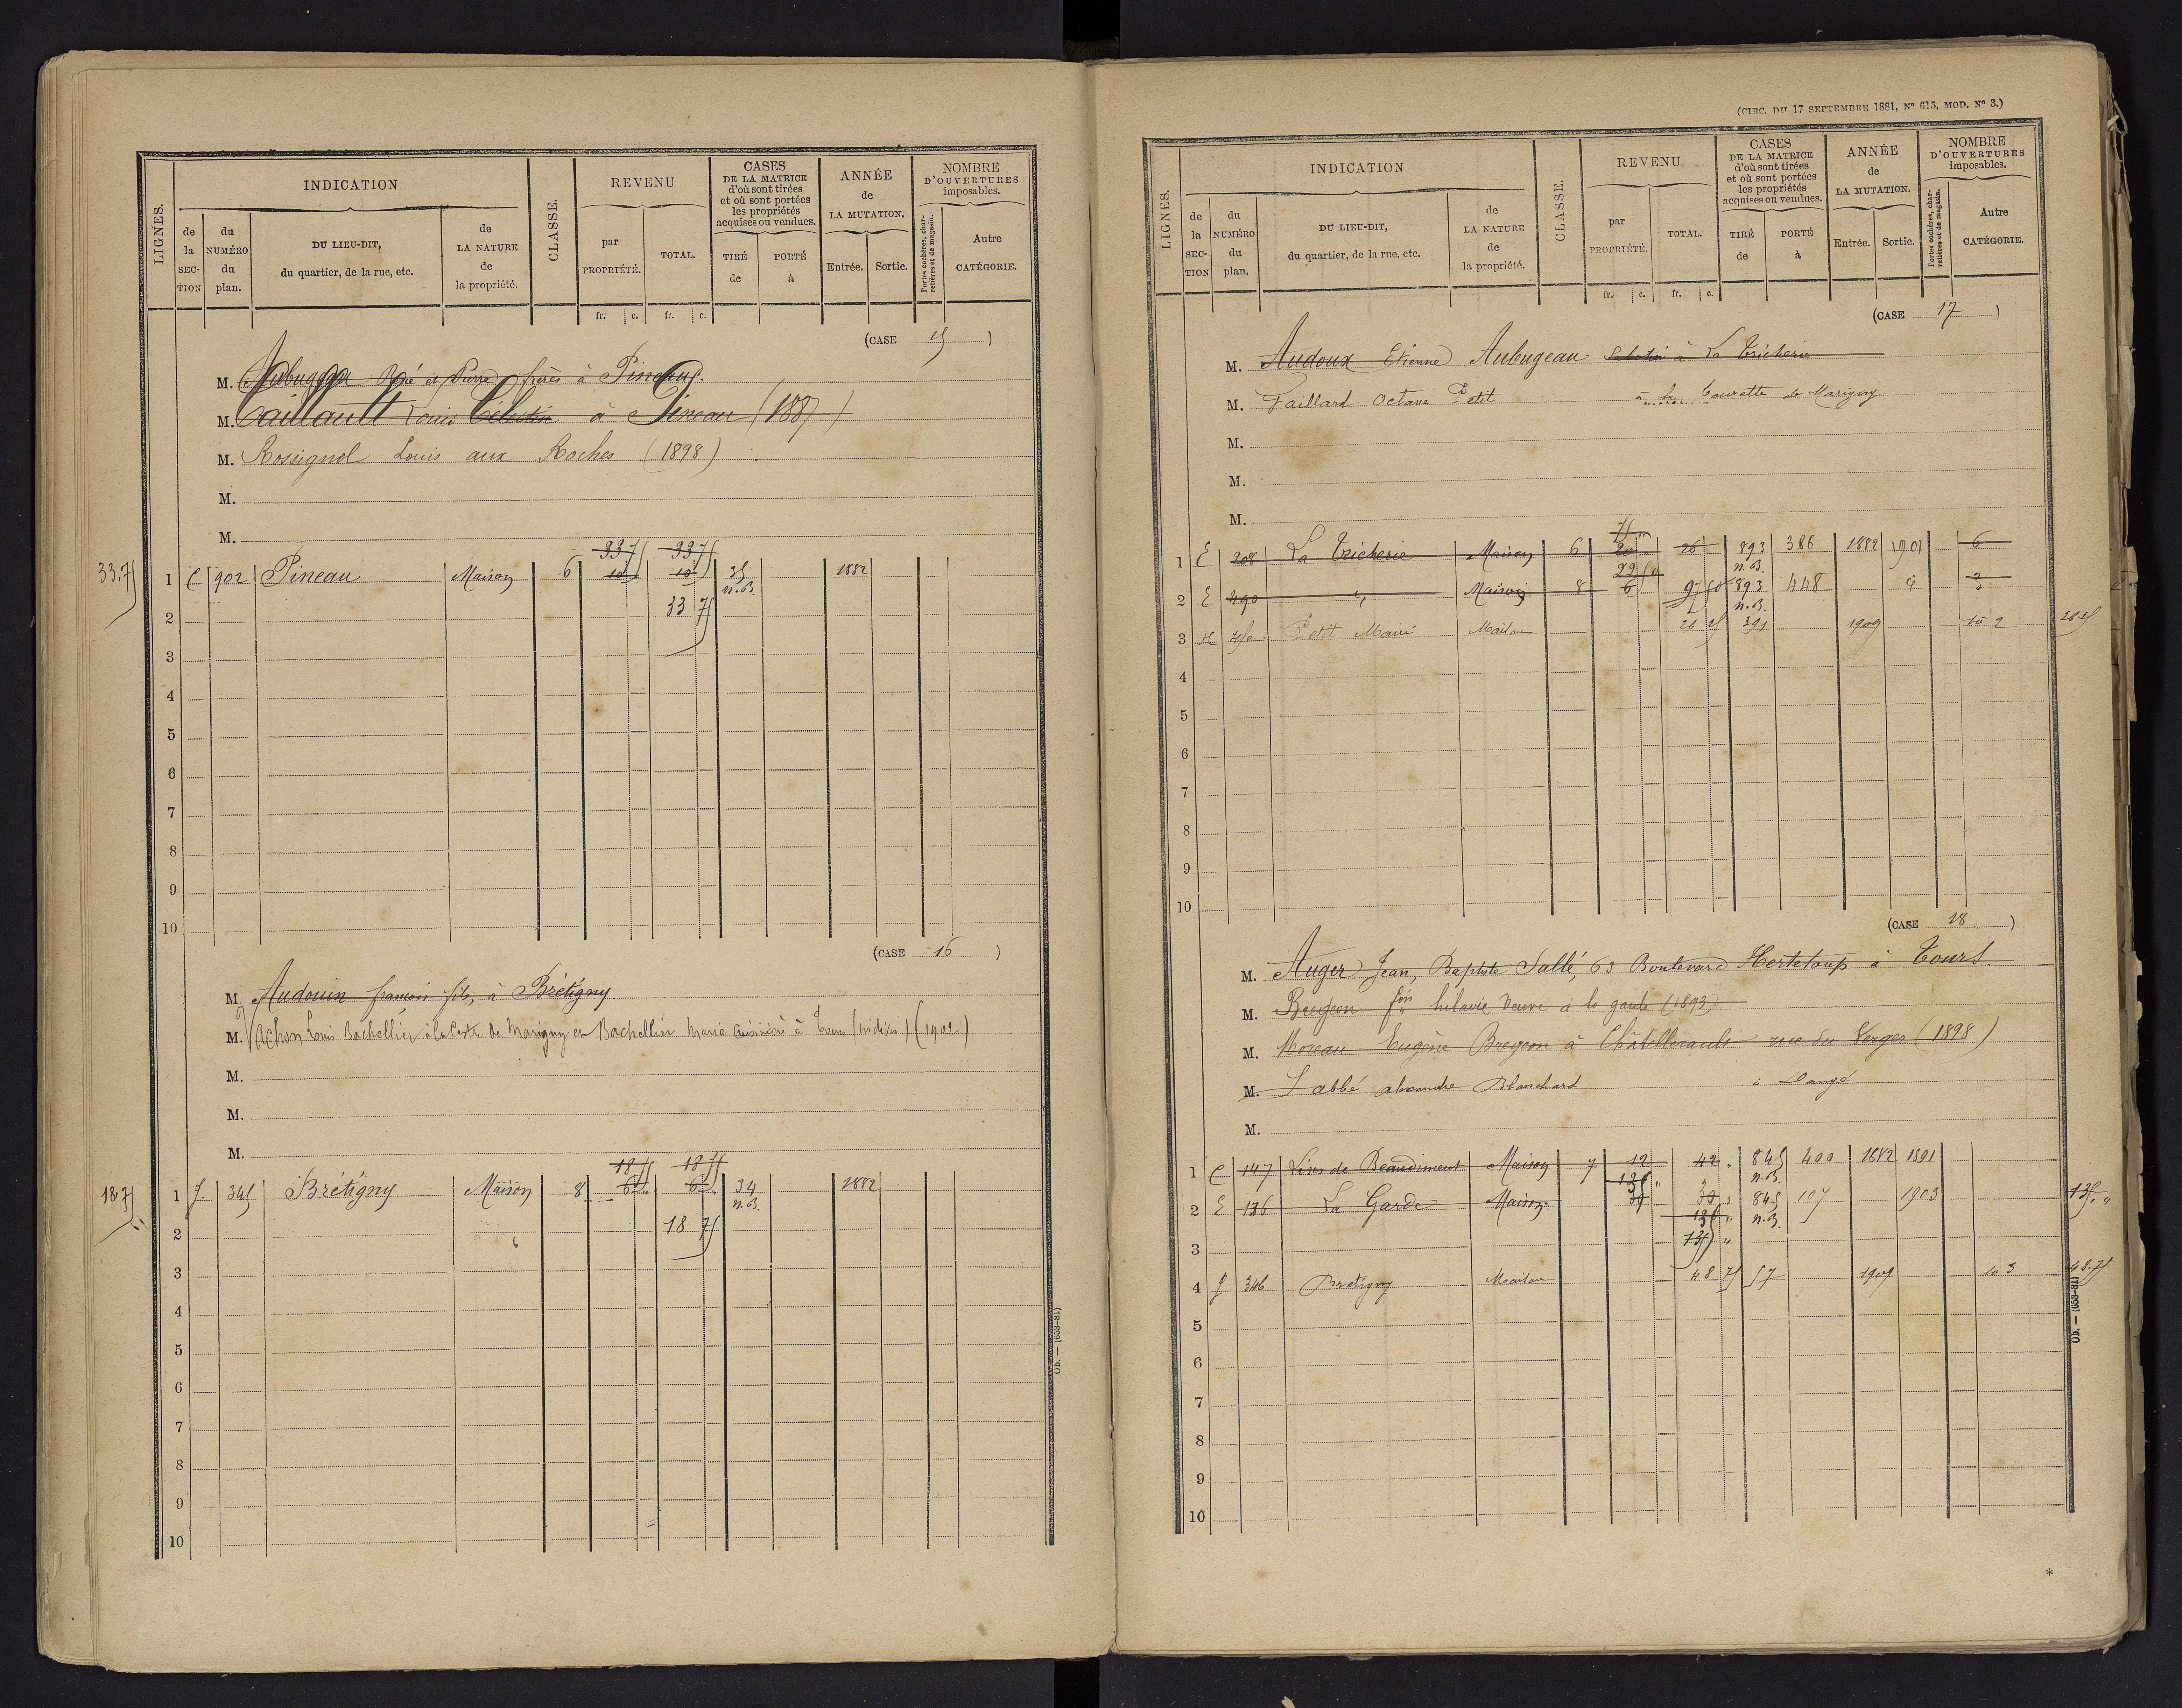 LIGNES.
INDICATION
de la SECTION
du NUMÉRO du plan.
DU LIEU-DIT, du quartier, de la rue, etc.
de LA NATURE de la propriété.
CLASSE.
REVENU
par PROPRIÉTÉ.
TOTAL.
fr. c. fr. c.
CASES DE LA MATRICE d'où sont tirées et où sont portées les propriétés acquises ou vendues.
TIRÉ de
PORTÉ à
ANNÉE de LA MUTATION.
Entrée. Sortie.
NOMBRE D'OUVERTURES imposables.
Portes cochères, charretières et de magasin.
Autre CATÉGORIE.
(CASE 15 )
M. Aubugeau René et Pierre frères à Pineau
M. Caillault Louis Célestin à Pineau (1887)
M. Rossignol Louis aux Roches (1898)
M.
M.
33 75 33 75
33.75 1 C 902 Pineau Maison 6 10 10 25 1882
n.B.
2 33 75
3
4
5
6
7
8
9
10
(CASE 16 )
M. Audouin françois fils, à Brétigny
M. Achon Louis Bachellier à la de Marigny en Bachellier Marie Cuisinière à Tours (indivis) (1902)
M.
M.
M.
18 75 18 75
18.75 1 J. 345 Brétigny Maison 8 6 6 34 1882
n.B.
2 18 75
3
4
5
6
7
8
9
10
Ob. — (653-81)
(CIRC. DU 17 SEPTEMBRE 1881, N° 615, MOD. N° 3.)
LIGNES.
INDICATION
de la SECTION
du NUMÉRO du plan.
DU LIEU-DIT, du quartier, de la rue, etc.
de LA NATURE de la propriété.
CLASSE.
REVENU
par PROPRIÉTÉ.
TOTAL.
fr. c. fr. c.
CASES DE LA MATRICE d'où sont tirées et où sont portées les propriétés acquises ou vendues.
TIRÉ de
PORTÉ à
ANNÉE de LA MUTATION.
Entrée. Sortie.
NOMBRE D'OUVERTURES imposables.
Portes cochères, charretières et de magasin.
Autre CATÉGORIE.
(CASE 17 )
M. Audoux Etienne Aubugeau Sabotier à La Tricherie
M. Gaillard Octave Petit à la Tourette de Marigny
M.
M.
M.
75
1 E 208 La Tricherie Maison 6 20 26 893 386 1882 1901 6
22 50 n.B.
2 E 490 " Maison 8 6 97 50 893 448 d° 3
n.B.
3 H 450 Petit Mairé Maison 26 25 391 1909 10 2 26.25
4
5
6
7
8
9
10
(CASE 18 )
M. Auger Jean, Baptiste Sallé, 63 Boulevard Herteloup à Tours.
M. Bregeon fois hilarie Veuve à la garde (1893)
M. Moreau Eugène Bregeon à Châtellerault rue du Verger (1898)
M. Labbé alexandre Blanchard à Dangé
M.
1 C 147 Lires de Beaudiment Maison 7 12 42 " 845 400 1882 1891
135 " n.B.
2 E 136 La Garde Maison 30 " 845 107 1903 135. "
135 " n.B.
3 135 "
4 J 346 Bretigny Maison 48 75 57 1909 10 3 48.75
5
6
7
8
9
10
Ob. — (653-81)
*